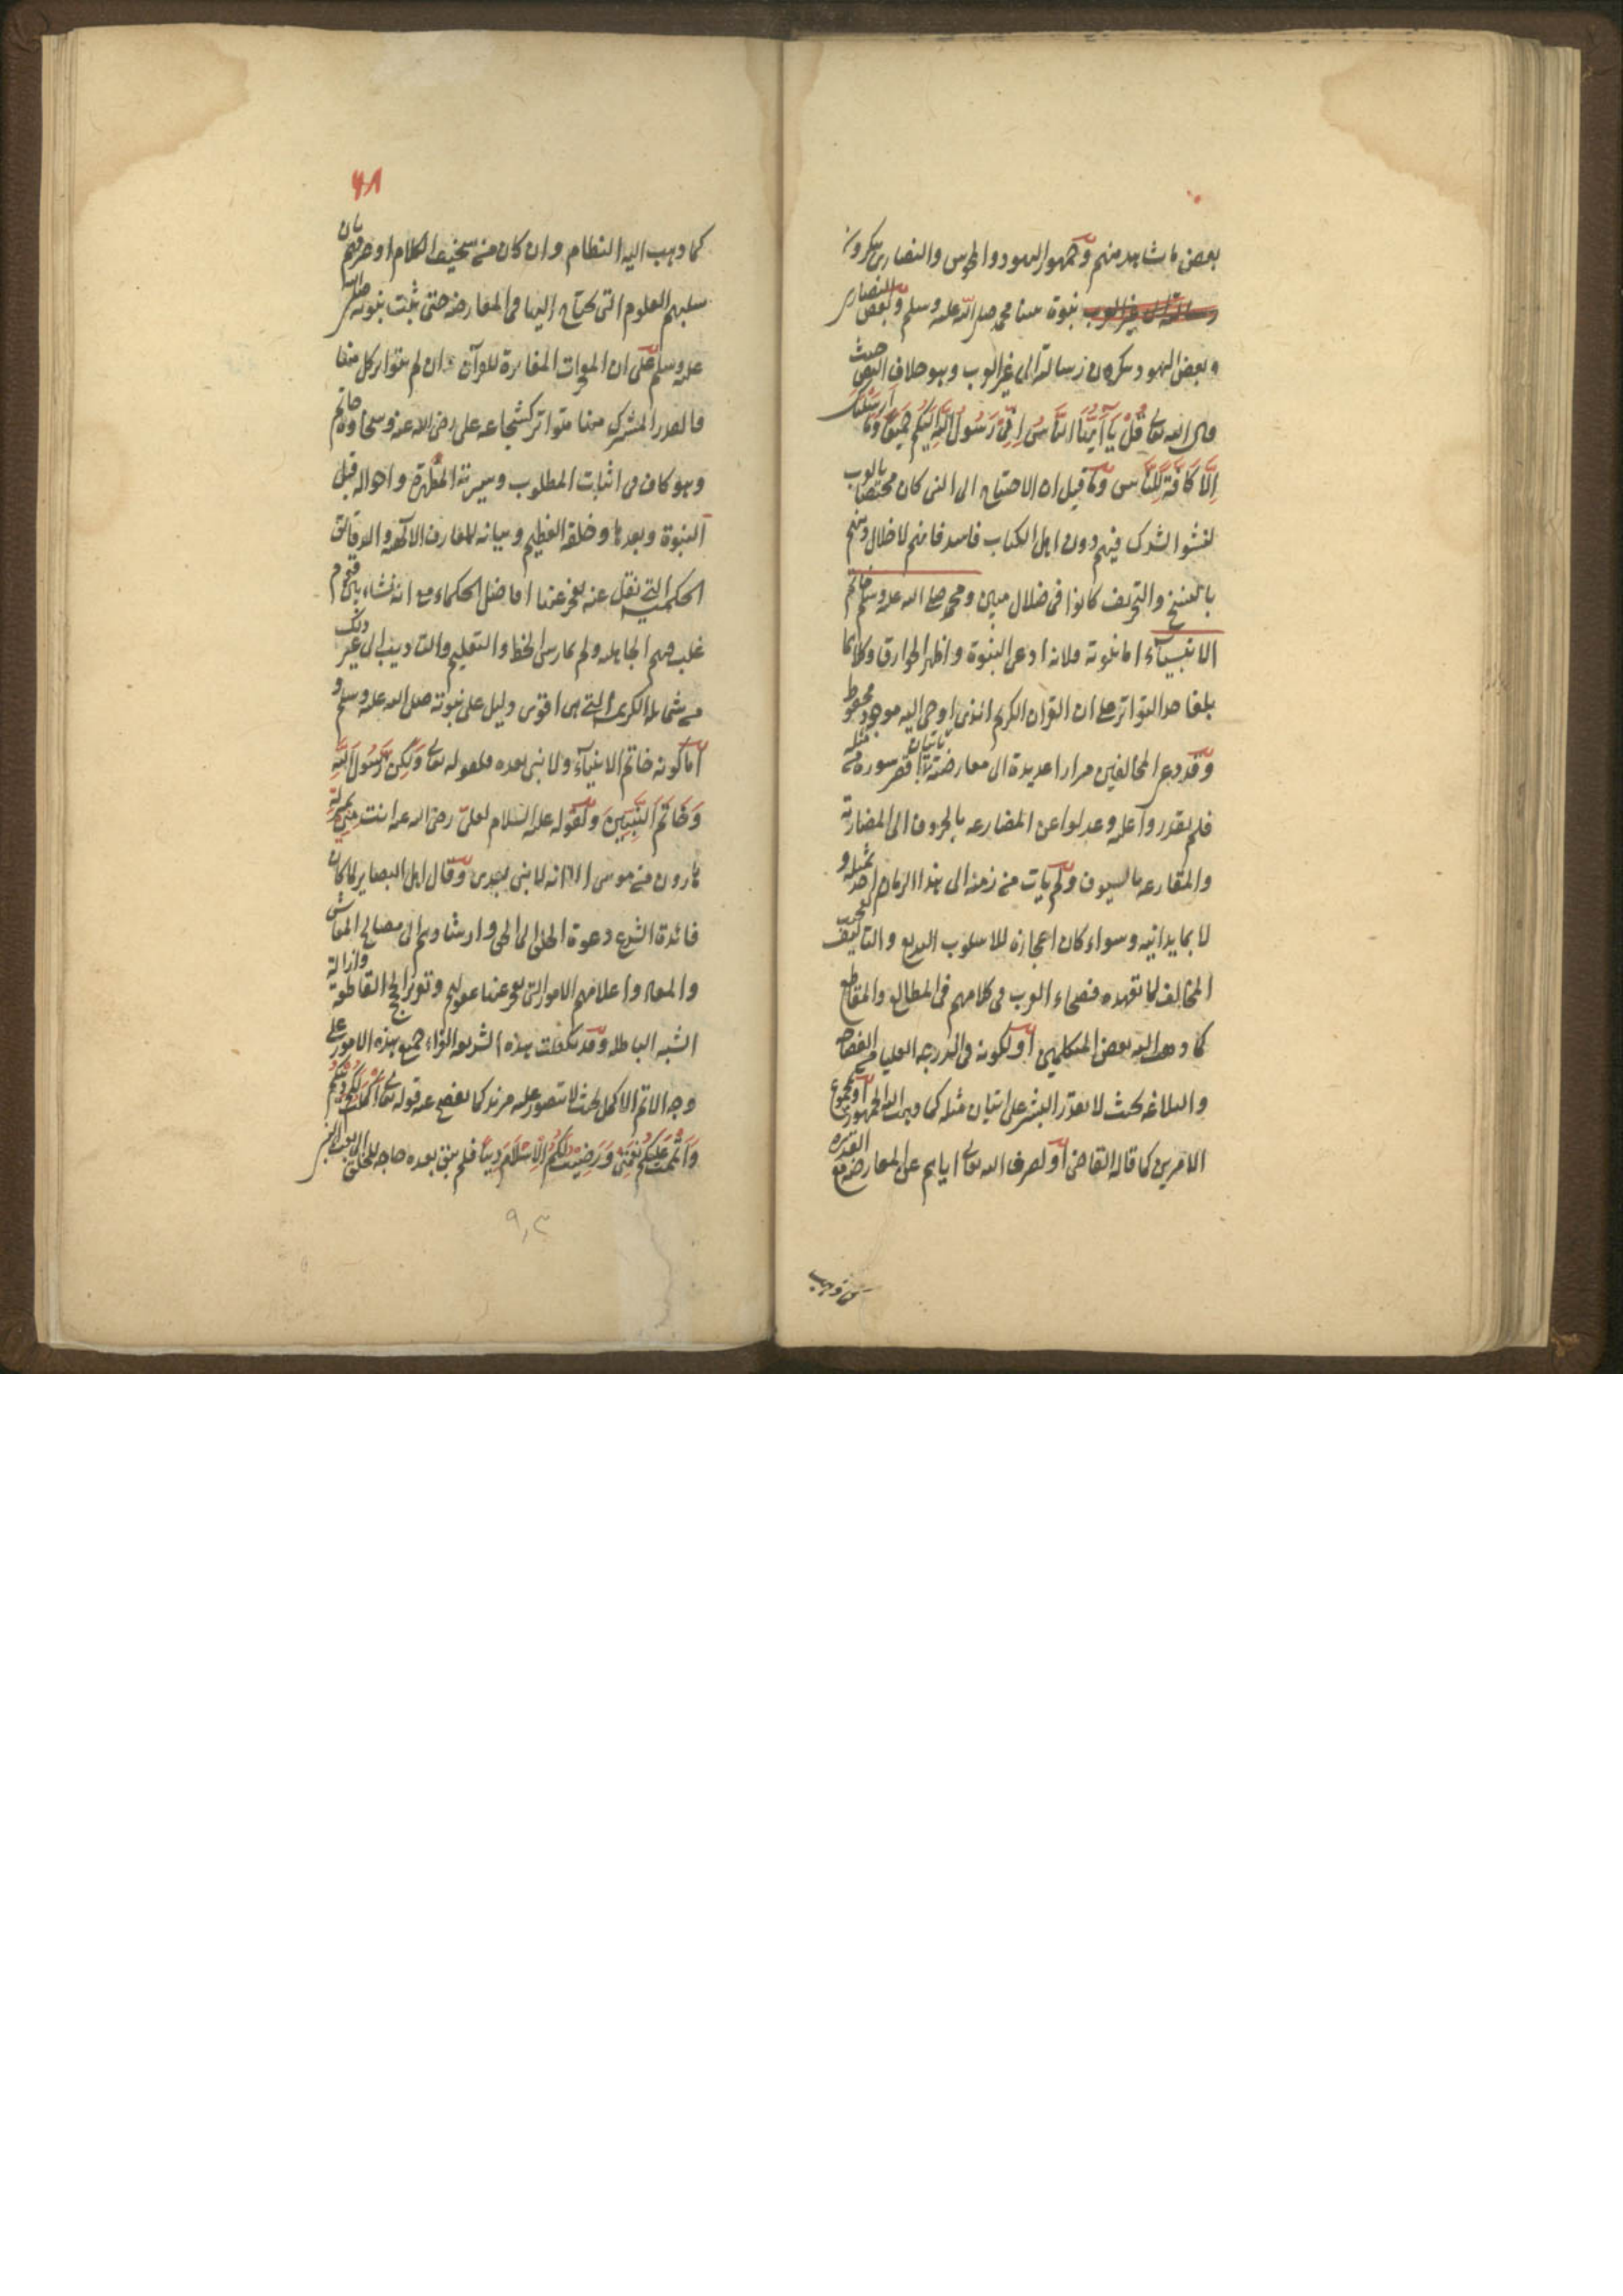 بعض ما شاهد منهم وجمهور اليهود والمجوس والنصارى ينكرون
رسالته الى غير العرب نبوة نبينا محمد صلى الله عليه وسلم وبعض النصارى
وبعض اليهود ينكرون رسالته الى غير العرب وهو خلاف النص حيث
قال الله تعالى قُلْ يَا أَيُّهَا النَّاسُ إِنِّي رَسُولُ اللَّهِ إِلَيْكُمْ جَمِيعًا وَمَا أَرْسَلْنَاكَ
إِلَّا كَافَّةً لِلنَّاسِ وما قيل ان الاحتياج الى النبي كان مختصا بالعرب
لفشو الشرك فيهم دون اهل الكتاب فاسد فانهم لاختلال دينهم
بالنسخ والتحريف كانوا في ضلال مبين ومحمد صلى الله عليه وسلم خاتم
الانبياء اما نبوته فلانه ادعى النبوة واظهر الخوارق وكلاهما
بلغا حد التواتر على ان القران الكريم الذي اوحى اليه موجود محفوظ
وقد دعى المخالفين مرارا عديدة الى معارضته باتيان اقصر سورة من مثله
فلم يقدروا عليه وعدلوا عن المضارعه بالحروف الى المضاربة
والمقارعه بالسيوف ولم يات من زمنه الى هذا الزمان احد بمثله و
لا بما يدانيه وسواء كان اعجازه للاسلوب البديع والتاليف العجيب
المخالف لما تعهده فصحاء العرب في كلامهم في المطالع والمقاطع
كما ذهب اليه بعض المتكلمين او لكونه في الدرجه العليا من الفصاحه
والبلاغه بحيث لا يقدر البشر على اتيان مثله كما ذهب اليه الجمهور او لمجموع
الامرين كما قاله القاضي او لصرف الله تعالى اياهم عن المعارضه مع القدرة
كما ذهب
٦٨
كما ذهب اليه النظام وان كان من سخيف الكلام او صرفهم بان
سلبهم العلوم التي يحتاج اليها في المعارضه حتى ثبت نبوته صلى الله
عليه وسلم على ان المعجزات المغايرة للقرآن وان لم يتواتر كل منها
فالقدر المشترك منها متواتر كشجاعه علي رضى الله عنه وسخاوة حاتم
وهو كاف في اثبات المطلوب وسيرته المطهرة واحواله قبل
النبوة وبعدها وخلقه العظيم وبيانه للمعارف الالهيه والدقائق
الحكميه التي نقل عنه يعجز عنها افاضل الحكماء مع انه نشاء بين قوم
غلب فيهم الجاهليه ولم يمارس الخط والتعليم والتاديب الى غير ذلك
من شمائله الكريمه التي هي اقوى دليل على نبوته صلى الله عليه وسلم و
اما كونه خاتم الانبياء ولا نبي بعده فلقوله تعالى وَلَكِن رَسُولَ اللَّهِ
وَخَاتَمَ النَّبِيِّينَ ولقوله عليه السلام لعليّ رضى الله عنه انت مني بمنزلة
هارون من موسى الا انه لا نبي بعدي وقال اهل البصاير لما كان
فائدة الشرع دعوة الخلق الى الحق وارشادهم الى مصالح المعاش
والمعاد واعلامهم الامور التي يعجز عنها عقولهم وتقرير الحجج القاطعة وازالة
الشبه الباطله وقد تكفلت هذه الشريعه الغراء جميع هذه الامور على
وجه الاتم الاكمل بحيث لا يتصور عليه مزيد كما يفصح عنه قوله تعالى أَكْمَلْتُ لَكُمْ دِينَكُمْ
وَأَتْمَمْتُ عَلَيْكُمْ نِعْمَتِي وَرَضِيتُ لَكُمُ الْإِسْلَامَ دِينًا فلم يبق بعده حاجه للخلق الى بعث النبي